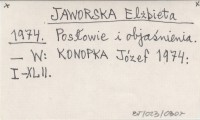 JAWORSKA Elżbieta
1974. Posłowie i objaśnienia.
— W: KONOPKA Józef 1974:
I-XLII.